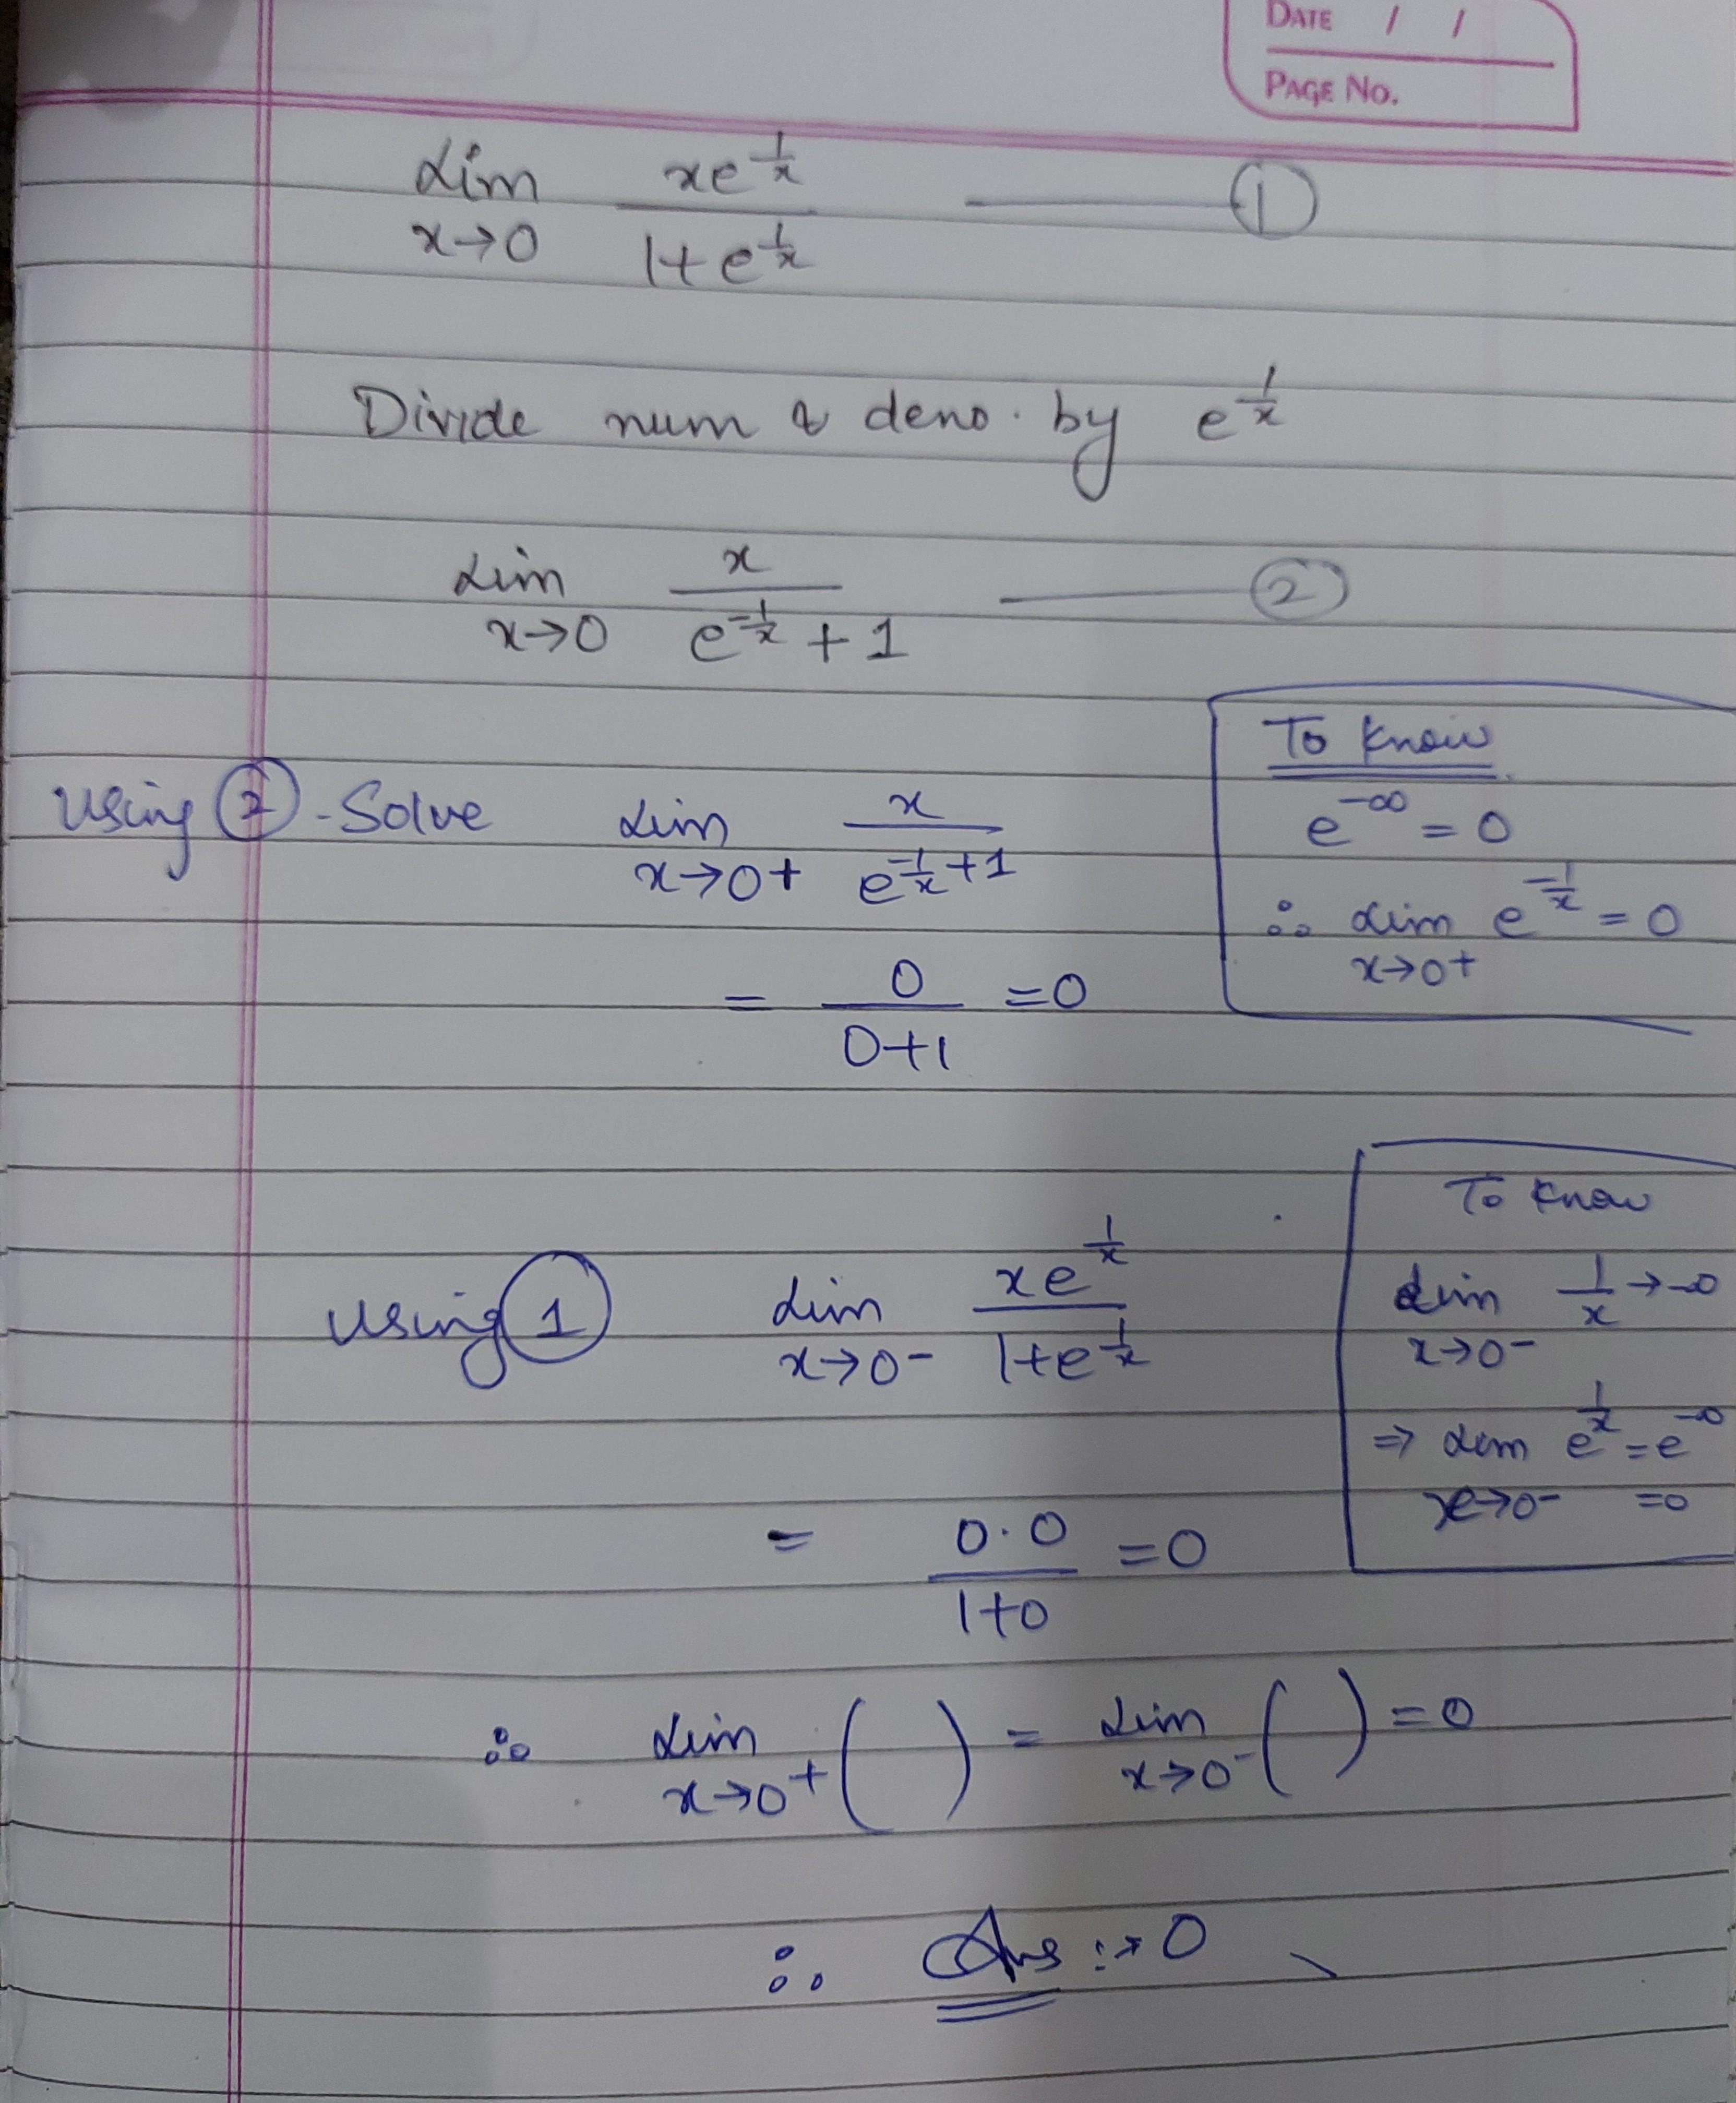 DATE / /
PAGE No.
Lim x→0 xe^(1/x) / 1+e^(1/x) ——— ①
Divide num & deno. by e^(1/x)
Lim x→0 x / e^(-1/x) + 1 ——— ②
To know
e^(-∞) = 0
∴ Lim x→0+ e^(-1/x) = 0
Using ② - Solve Lim x→0+ x / e^(-1/x)+1
= 0 / 0+1 = 0
To know
Lim x→0- 1/x → -∞
⇒ Lim x→0- e^(1/x) = e^(-∞)
=0
Using ① Lim x→0- xe^(1/x) / 1+e^(1/x)
= 0·0 / 1+0 = 0
∴ Lim x→0+ ( ) = Lim x→0- ( ) = 0
∴ Ans :→ 0